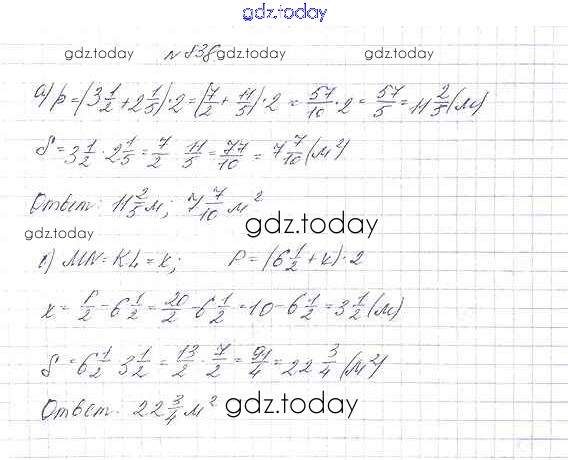 gdz.today
gdz.today № 838. gdz.today gdz.today
а) p = (3 1/2 + 2 1/5) · 2 = (7/2 + 11/5) · 2 = 57/10 · 2 = 57/5 = 11 2/5 (м)
S = 3 1/2 · 2 1/5 = 7/2 · 11/5 = 77/10 = 7 7/10 (м²)
Ответ: 11 2/5 м; 7 7/10 м²
gdz.today gdz.today
MN = KL = x; P = (6 1/2 + x) · 2
x = P/2 - 6 1/2 = 20/2 - 6 1/2 = 10 - 6 1/2 = 3 1/2 (м)
S = 6 1/2 · 3 1/2 = 13/2 · 7/2 = 91/4 = 22 3/4 (м²)
Ответ: 22 3/4 м² gdz.today